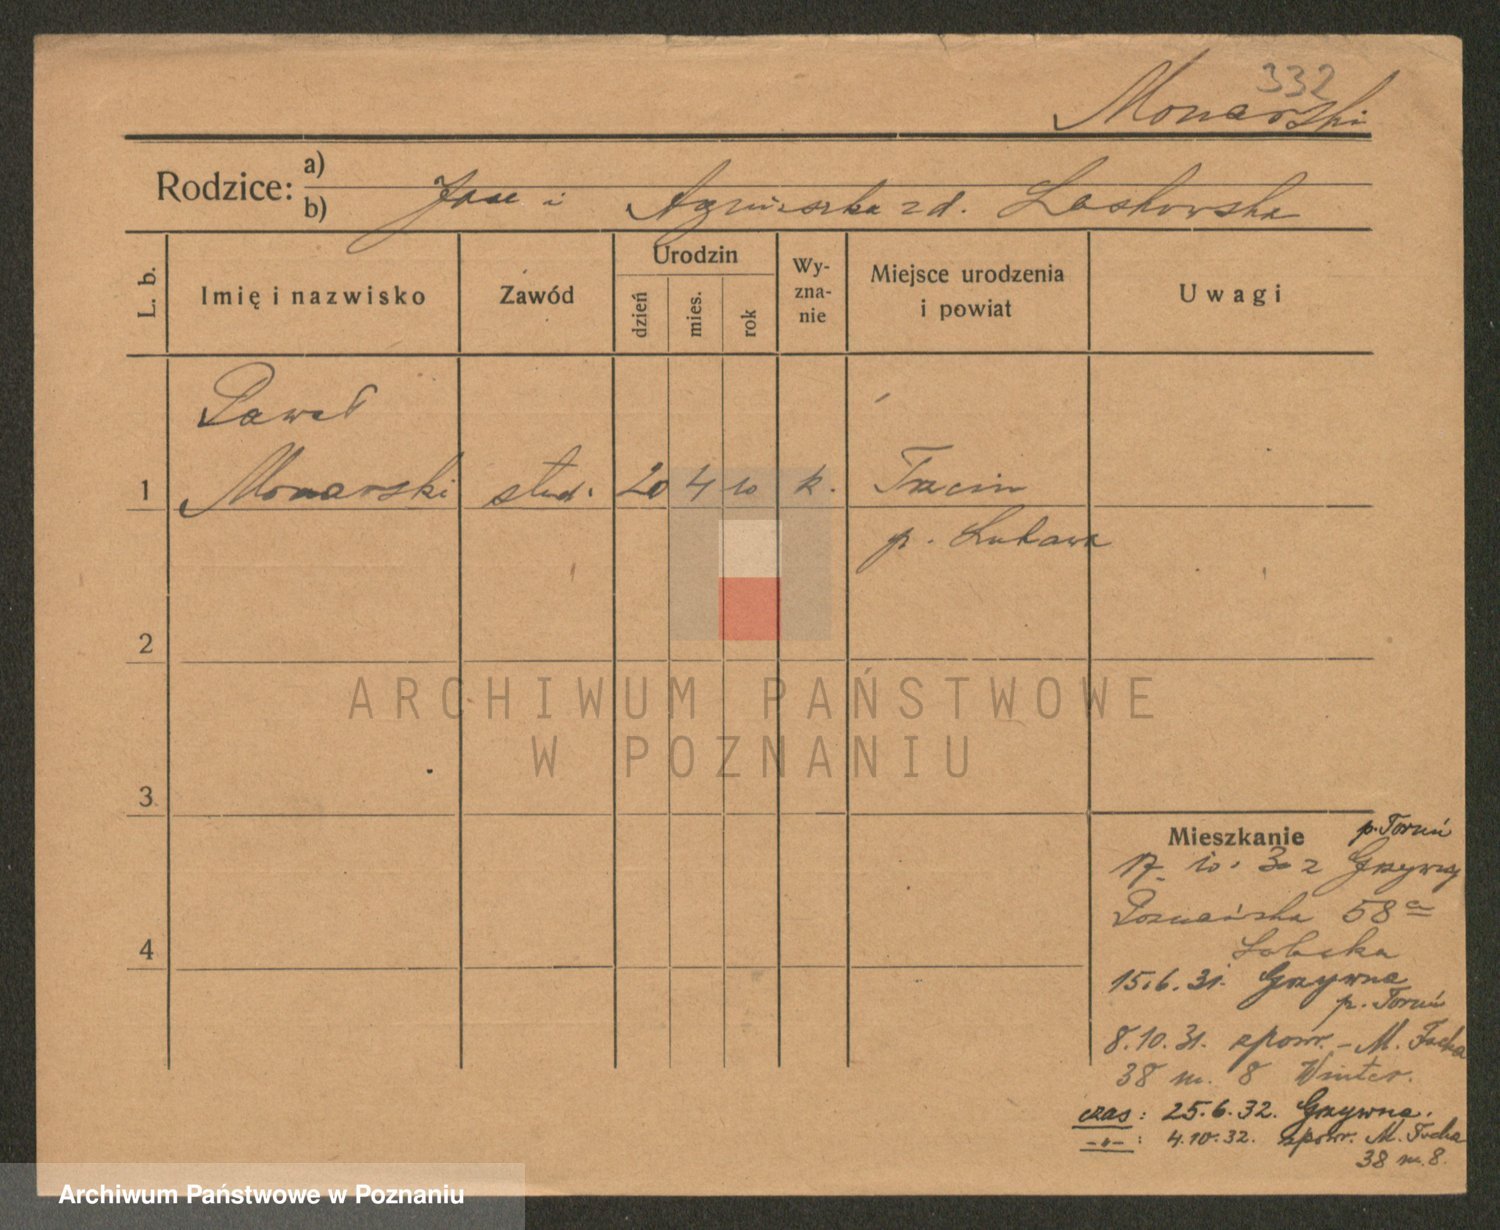 332
Monarski
Rodzice: a)
b) Jan i Agnieszka z d. Laskowska
L. b.
Imię i nazwisko
Zawód
Urodzin
dzień
mies.
rok
Wy-
zna-
nie
Miejsce urodzenia
i powiat
Uwagi
Paweł
1 Monarski stud. 20 4 10 k. Trzcin
p. Lubawa
2
3
4
ARCHIWUM PAŃSTWOWE
W POZNANIU
Mieszkanie p. Toruń
17. 10. 30 z Grzywny
Poznańska 58a
15.6.31. Grzywna
p. Toruń
8.10.31. zpowr. - M. Focha
38 m. 8 Winter.
czas: 25.6.32. Grzywna.
-"- : 4.10.32. zpowr. M. Focha
38 m. 8.
Archiwum Państwowe w Poznaniu